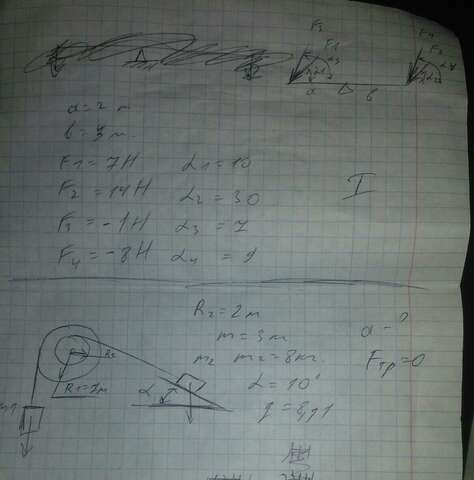 F₃
F₁
α₃
F₄
F₂
a
b
a = 2 м
b = 3 м.
F₁ = 7 Н α₁ = 10
F₂ = 14 Н α₂ = 30
F₃ = -1 Н α₃ = 7
F₄ = -8 Н α₄ = 9
I
R₂ = 2 м
m = 3 м
m₂ m₂ = 8 кг.
α = 10°
g = 9,81
a = ?
Fтр = 0
R₂
R₁ = 1 м
α
m₁